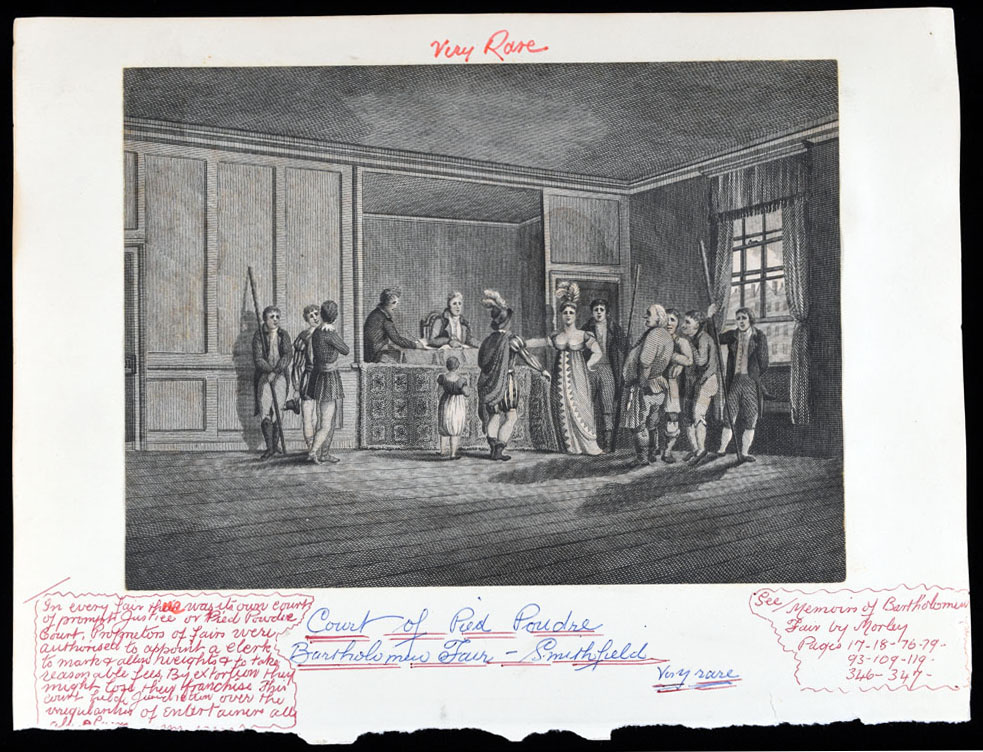 Very Rare
In every fair there was its own court
of prompt Justice or Pied Powdre
Court. Proprietors of fairs were
authorised to appoint a clerk
to mark & allow weights & to take
reasonable fees. By extortion they
might lose they franchise This
court held Jurisdiction over the
irregularities of Entertainers all
Court of Pied Poudre
Bartholomew Fair - Smithfield
Very rare
See Memoirs of Bartholomew
Fair by Morley
Pages 17-18-76-79-
93-109-119-
346-347-